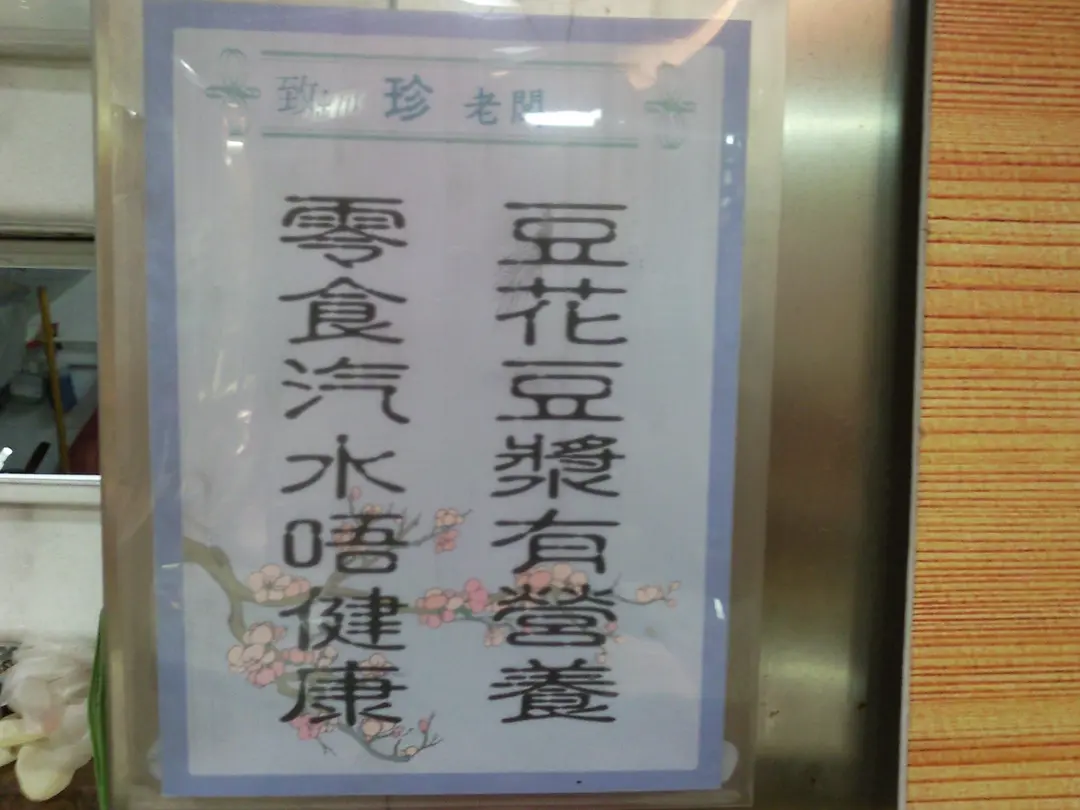 致 珍 老闆
豆花豆漿有營養
零食汽水唔健康